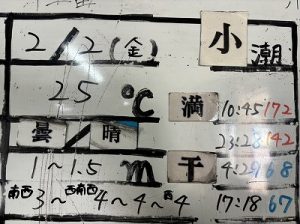 2/2(金) 小潮
25 ℃ 満 10:45 172
曇/晴 23:28 142
1~1.5 m 干 4:29 68
南西3~西南西4~4~西4 17:18 67